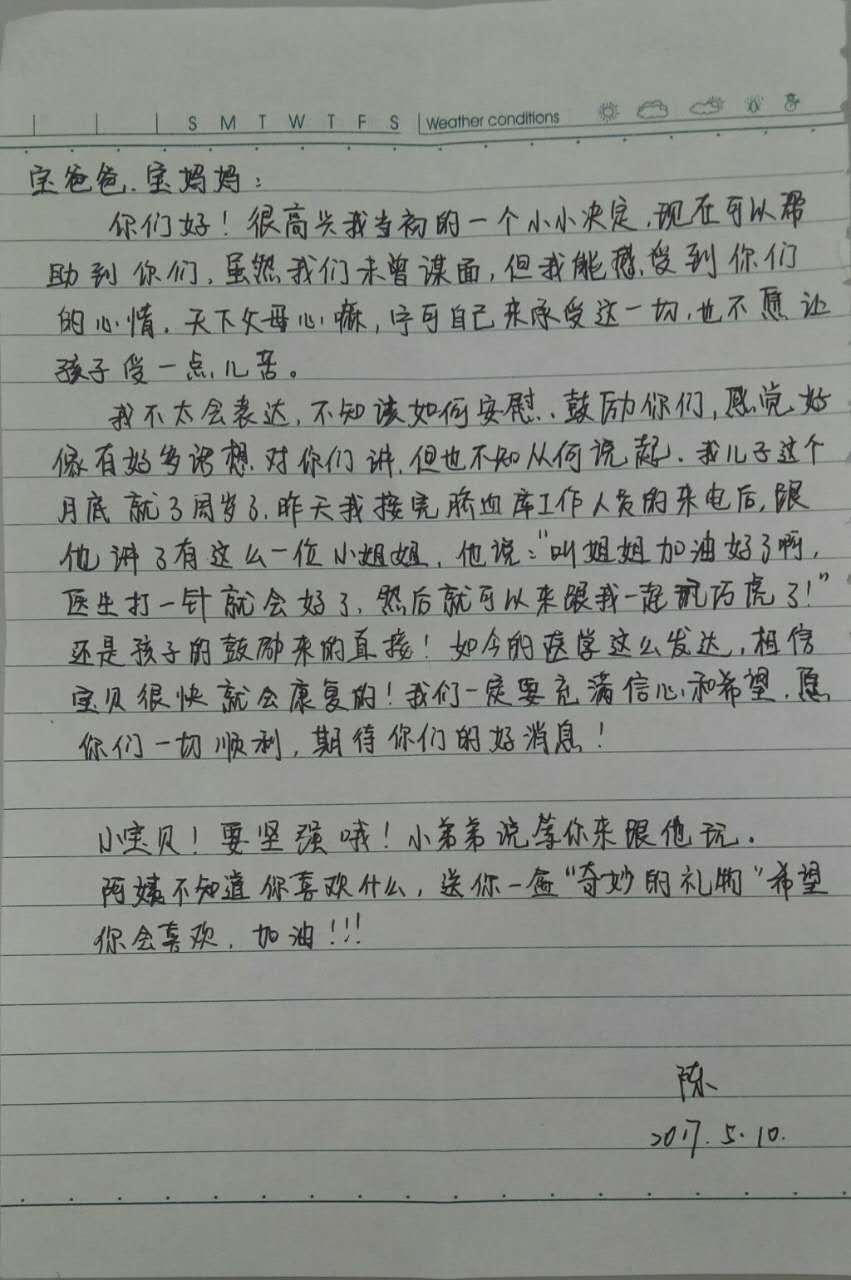 S M T W T F S Weather conditions
宝爸爸、宝妈妈：
你们好！很高兴我当初的一个小小决定，现在可以帮
助到你们，虽然我们未曾谋面，但我能感受到你们
的心情，天下父母心嘛，宁可自己来承受这一切，也不愿让
孩子受一点儿苦。
我不太会表达，不知该如何安慰、鼓励你们，感觉好
像有好多话想对你们讲，但也不知从何说起。我儿子这个
月底就3周岁了，昨天我接完脐血库工作人员的来电后，跟
他讲了有这么一位小姐姐，他说："叫姐姐加油好了啊，
医生打一针就会好了，然后就可以来跟我一起玩巧虎了！"
还是孩子的鼓励来的直接！如今的医学这么发达，相信
宝贝很快就会康复的！我们一定要充满信心和希望，愿
你们一切顺利，期待你们的好消息！
小宝贝！要坚强哦！小弟弟说等你来跟他玩。
阿姨不知道你喜欢什么，送你一盒"奇妙的礼物"希望
你会喜欢，加油！!!
陈
2017.5.10.